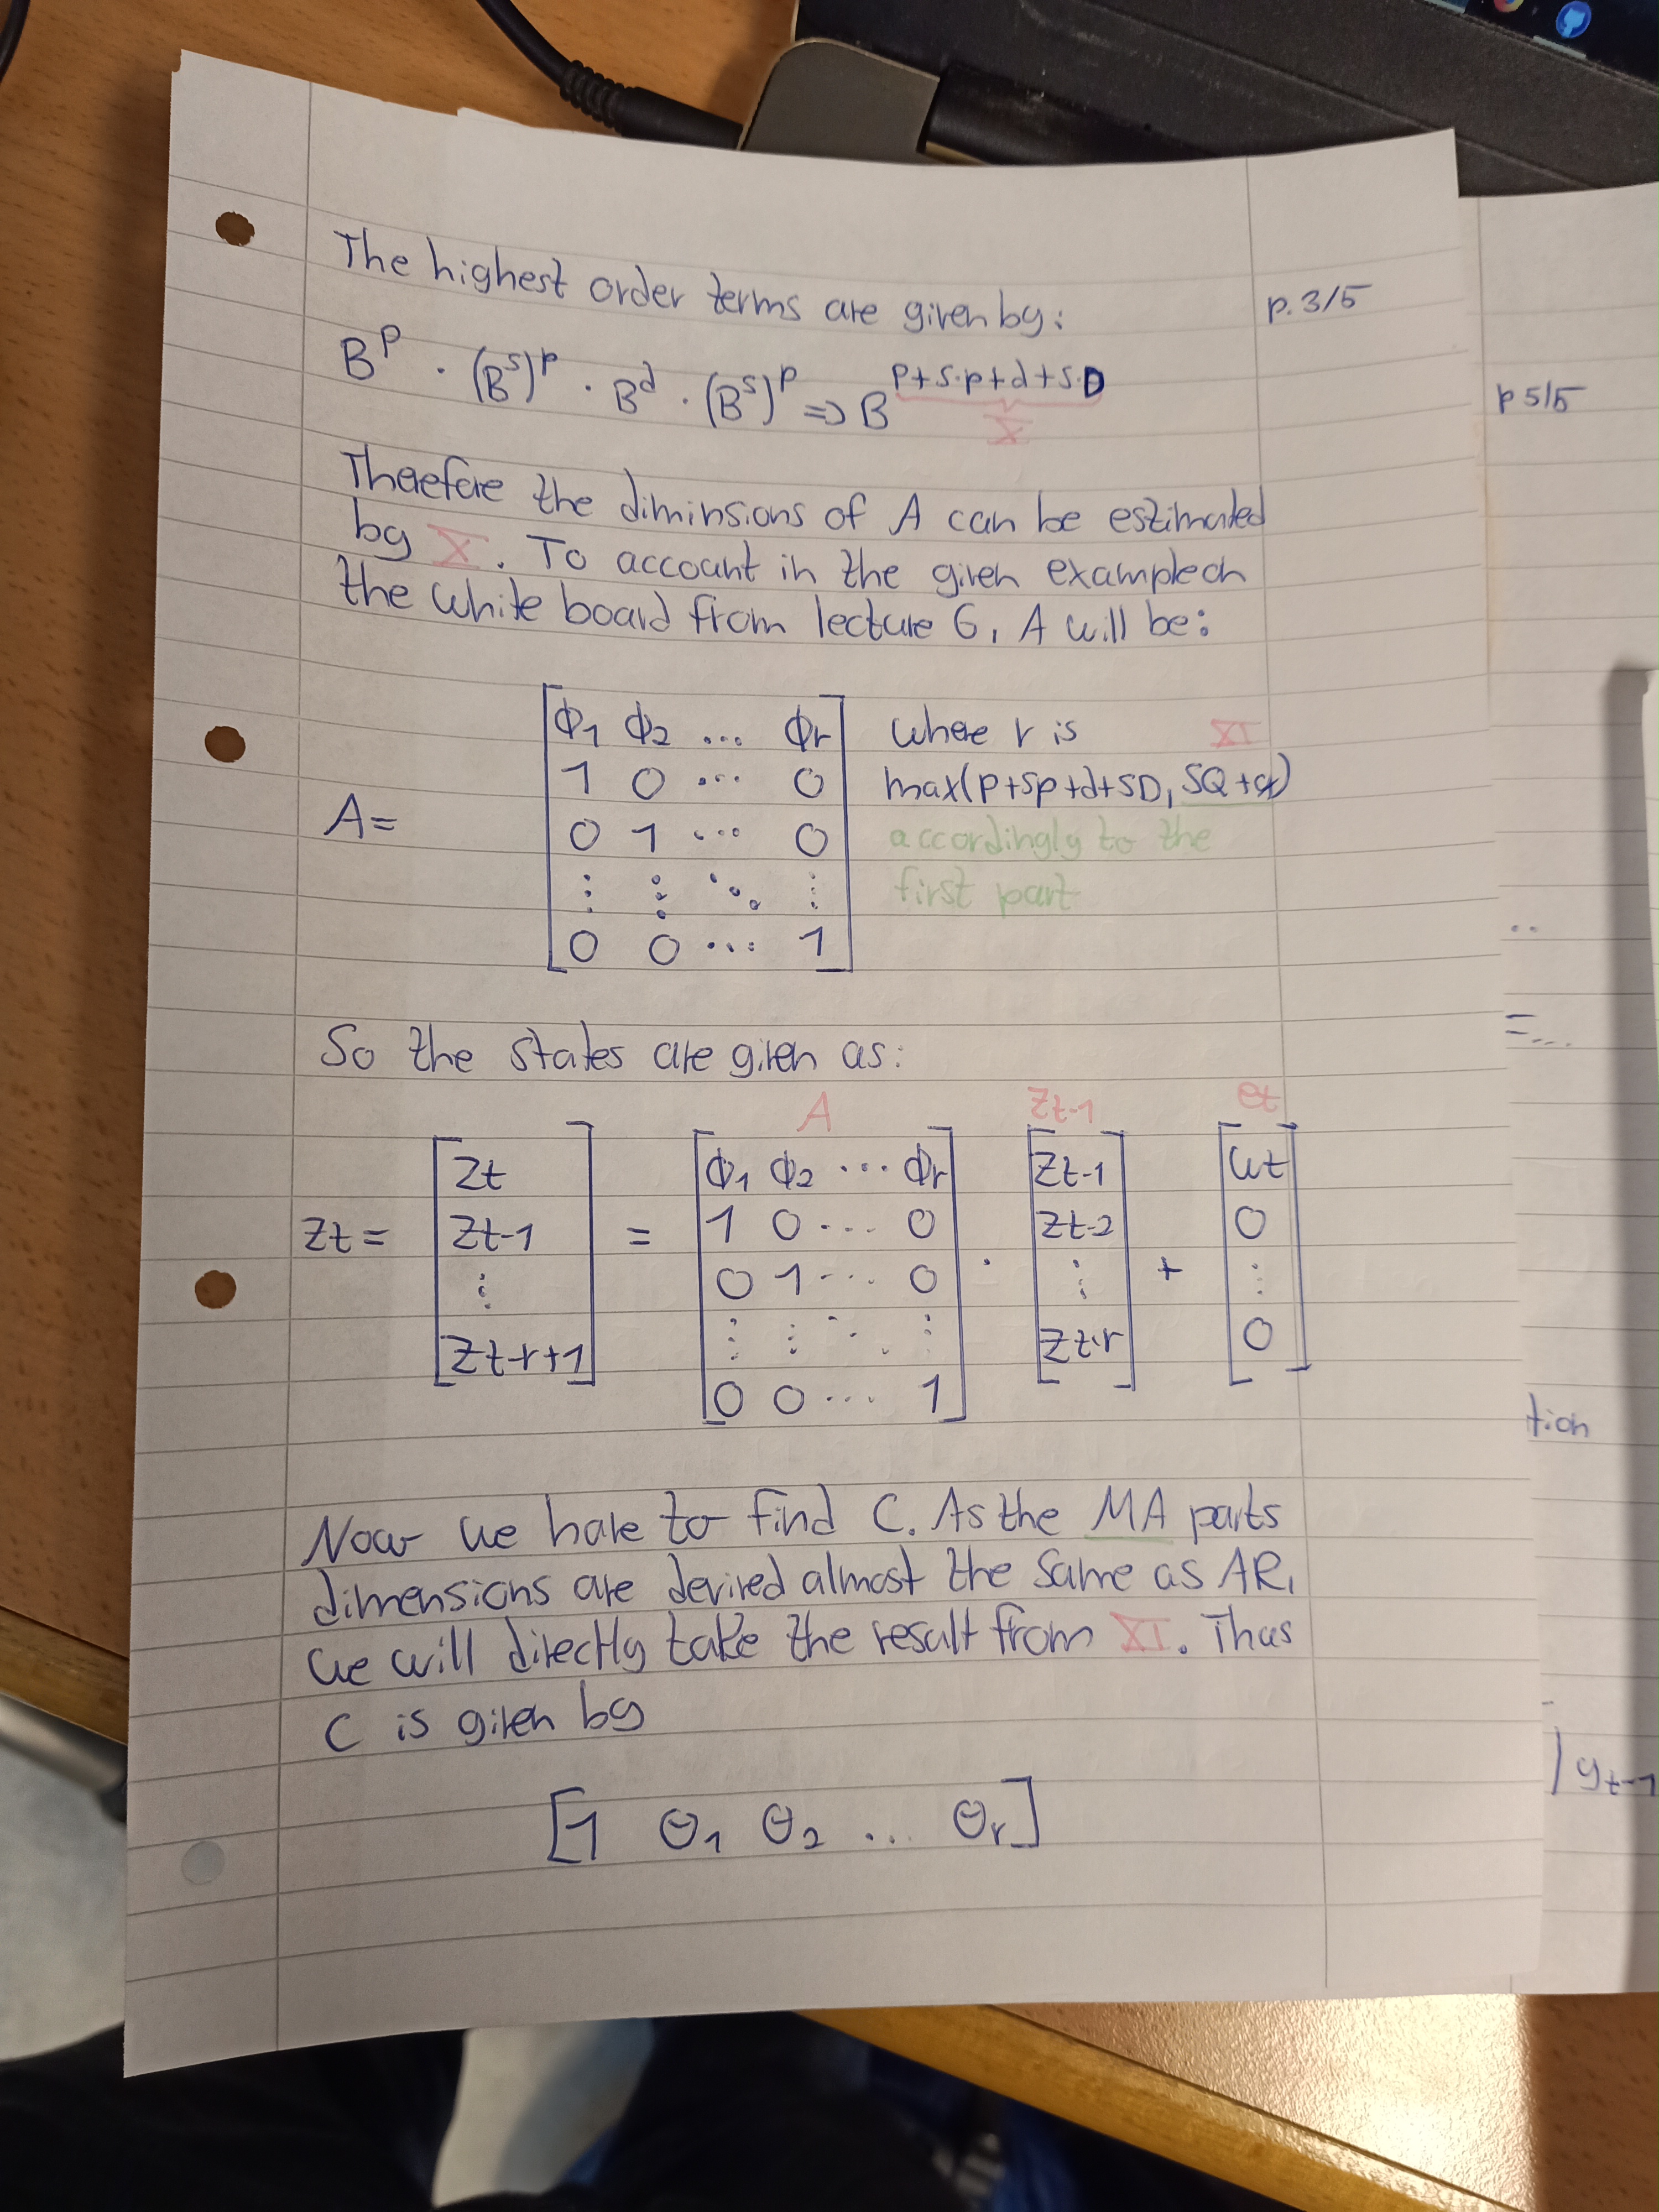 The highest order terms are given by:
p. 3/5
B^p · (B^s)^p · B^d · (B^s)^p => B^{p+s·p+d+s·D}
X
Thaefore the diminsions of A can be estimated
by X. To account in the given example on
the white board from lecture 6, A will be:
A= [ϕ1 ϕ2 ... ϕr] where r is XI
[1 0 ... 0] max(p+sp+d+sD, SQ+q)
[0 1 ... 0] accordingly to the
[⋮ ⋮ ⋱ ⋮] first part
[0 0 ... 1]
So the states are given as:
A Zt-1 et
[Zt] [ϕ1 ϕ2 ... ϕr] [Zt-1] [wt]
Zt = [Zt-1] = [1 0 ... 0] · [Zt-2] + [0]
[⋮] [0 1 ... 0] [⋮] [⋮]
[Zt-r+1] [⋮ ⋮ ⋱ ⋮] [Zt-r] [0]
[0 0 ... 1]
Now we have to find C. As the MA parts
dimensions are devired almost the same as AR,
we will directly take the result from XI. Thus
C is given by
[1 Θ1 Θ2 ... Θr]
p 5/5
..
=...
tion
| yt-1